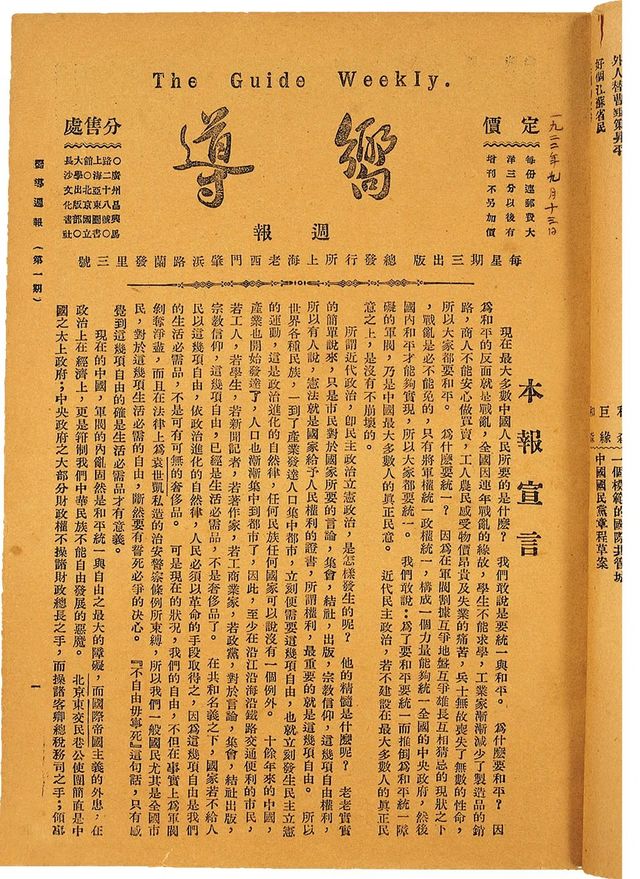 The Guide Weekly.
嚮導
週報
定價
每份連郵費大
洋三分以後有
增刊不另加價
一九二二年九月十三日
分售處
〇廣州昌興馬
路二十八號〇
上海亞東圖書
館〇北京國立
大學出版部〇
長沙文化書社
每星期三出版 總發行所上海老西門肇浜路蘭發里三號
嚮導週報 (第一期)
本報宣言
現在最大多數中國人民所要的是什麼? 我們敢說是要統一與和平。 爲什麼要和平? 因
爲和平的反面就是戰亂,全國因連年戰亂的緣故,學生不能求學,工業家漸漸減少了製造品的銷
路,商人不能安心做買賣,工人農民感受物價昂貴及失業的痛苦,兵士無故喪失了無數的性命,
所以大家都要和平。 爲什麼要統一? 因爲在軍閥割據互爭地盤互爭雄長互相猜忌的現狀之下
,戰亂是必不能免的,只有將軍權統一政權統一,構成一個力量能夠統一全國的中央政府,然後
國內和平才能夠實現,所以大家都要統一。 我們敢說:爲了要和平要統一而推倒爲和平統一障
礙的軍閥,乃是中國最大多數人的眞正民意。 近代民主政治,若不建設在最大多數人的眞正民
意之上,是沒有不崩壞的。
所謂近代政治,卽民主政治立憲政治,是怎樣發生的呢? 他的精髓是什麼呢? 老老實實
的簡單說來,只是市民對於國家所要的言論,集會,結社,出版,宗敎信仰,這幾項自由權利,
所以有人說,憲法就是國家給予人民權利的證書,所謂權利,最重要的就是這幾項自由。 所以
世界各種民族,一到了產業發達人口集中都市,立刻便需要這幾項自由,也就立刻發生民主立憲
的運動,這是政治進化的自然律,任何民族任何國家可以說沒有一個例外。 十餘年來的中國,
產業也開始發達了,人口也漸漸集中到都市了,因此,至少在沿江沿海沿鐵路交通便利的市民,
若工人,若學生,若新聞記者,若著作家,若工商業家,若政黨,對於言論,集會,結社出版,
宗敎信仰,這幾項自由,已經是生活必需品,不是奢侈品了。 在共和名義之下,國家若不給人
民以這幾項自由,依政治進化的自然律,人民必須以革命的手段取得之,因爲這幾項自由是我們
的生活必需品,不是可有可無的奢侈品。 可是現在的狀況,我們的自由,不但在事實上爲軍閥
剝奪淨盡,而且在法律上爲袁世凱私造的治安警察條例所束縛,所以我們一般國民尤其是全國市
民,對於這幾項生活必需的自由,斷然要有誓死必爭的决心。 『不自由毋寧死』這句話,只有感
覺到這幾項自由的確是生活必需品才有意義。
現在的中國,軍閥的內亂固然是和平統一與自由之最大的障礙,而國際帝國主義的外患,在
政治上在經濟上,更是箝制我們中華民族不能自由發展的惡魔。 北京東交民巷公使團簡直是中
國之太上政府;中央政府之大部分財政權不操諸財政總長之手,而操諸客卿總稅務司之手;領事
一
好個江蘇省民
一個模範的國際共管城
中國國民黨章程草案